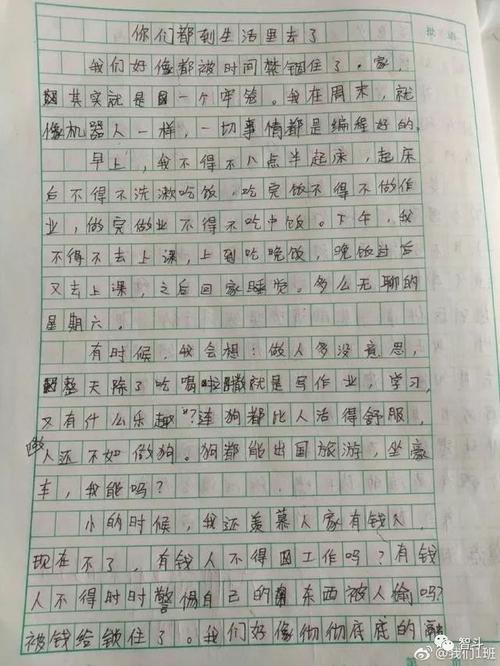 你们都到生活里去了
我们好像都被时间禁锢住了。家,
其实就是一个牢笼。我在周末,就
像机器人一样,一切事情都是编程好的。
早上,我不得不八点半起床,起床
后不得不洗漱吃饭,吃完饭不得不做作
业,做完做业不得不吃中饭。下午,我
不得不去上课,上到吃晚饭,晚饭过后
又去上课,之后回家睡觉。多么无聊的
星期六。
有时候,我会想:做人多没意思,
整天除了吃喝拉撒就是写作业,学习,
又有什么乐趣?连狗都比人活得舒服,
做人还不如做狗。狗都能出国旅游,坐豪
车,我能吗?
小的时候,我还羡慕人家有钱人,
现在不了,有钱人不得工作吗?有钱
人不得时时警惕自己的东西被人偷吗?
被钱给锁住了。我们好像彻彻底底的
批
智斗
@我们1班